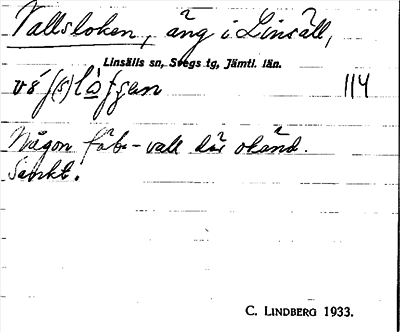 Vallsloken, äng i Linsäll,
Linsälls sn, Svegs tg, Jämtl. län.
114
Någon fäb-vall där okänd.
Sankt.
C. LINDBERG 1933.